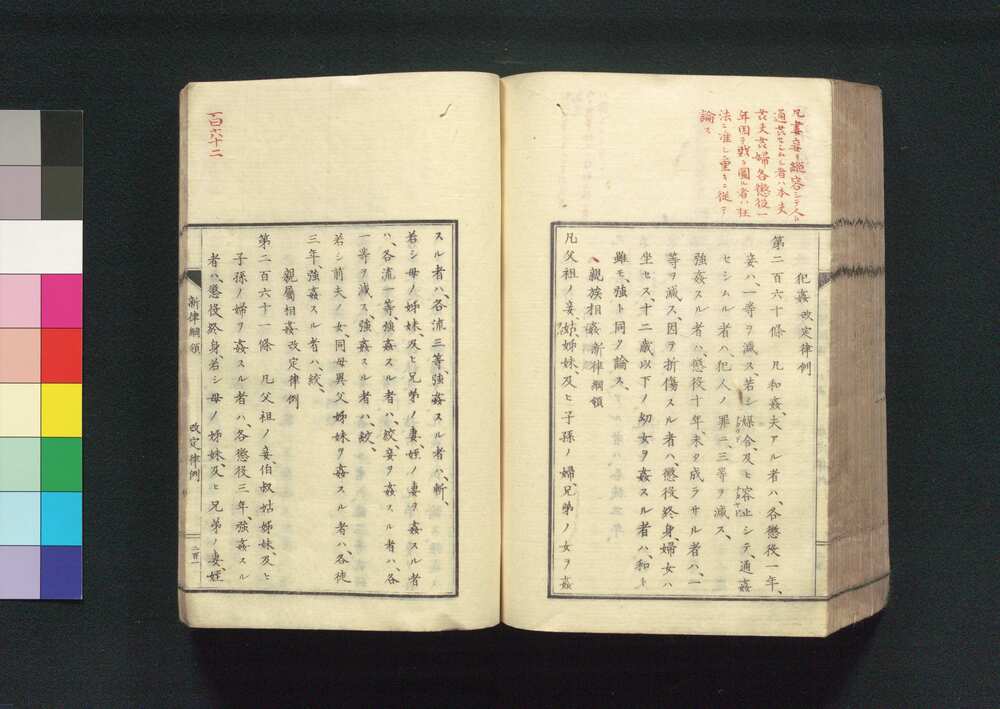 凡妻妾ヲ縦容シテ人ト
通姦セシムル者ハ本夫
姦夫姦婦各懲役一
年因テ
法ニ准シ重キニ従テ
論ス
犯姦改定律例
第二百六十條 凡和姦、夫アル者ハ、各懲役一年、
妾ハ、一等ヲ減ス、若シ媒合、及ヒ容止シテ、通姦
セシムル者ハ、犯人ノ罪ニ、三等ヲ減ス、
強姦スル者ハ、懲役十年、未タ成ラサル者ハ、一
等ヲ減ス、因テ折傷スル者ハ、懲役終身、婦女ハ
坐セス、十二歳以下ノ幼女ヲ姦スル者ハ、和ト
雖モ、強ト同ク論ス、
親族相姦新律綱領
凡父祖ノ妾、姑、姉妹、及ヒ子孫ノ婦、兄弟ノ女ヲ姦
一百六十二
スル者ハ、各流三等、強姦スル者ハ、斬、
若シ母ノ姉妹、及ヒ兄弟ノ妻、姪ノ妻ヲ姦スル者
ハ、各流一等、強姦スル者ハ、絞、妾ヲ姦スル者ハ、各
一等ヲ減ス、強姦スル者ハ、絞、
若シ前夫ノ女、同母異父姉妹ヲ姦スル者ハ、各徒
三年、強姦スル者ハ、絞、
親屬相姦改定律例
第二百六十一條 凡父祖ノ妾、伯叔姑姉妹、及ヒ
子孫ノ婦ヲ姦スル者ハ、各懲役三年、強姦スル
者ハ、懲役終身、若シ母ノ姉妹、及ヒ兄弟ノ妻、姪
新律綱領 改定律例 二百一